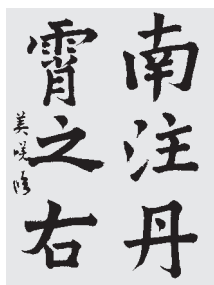 南注丹
霄之右
美咲